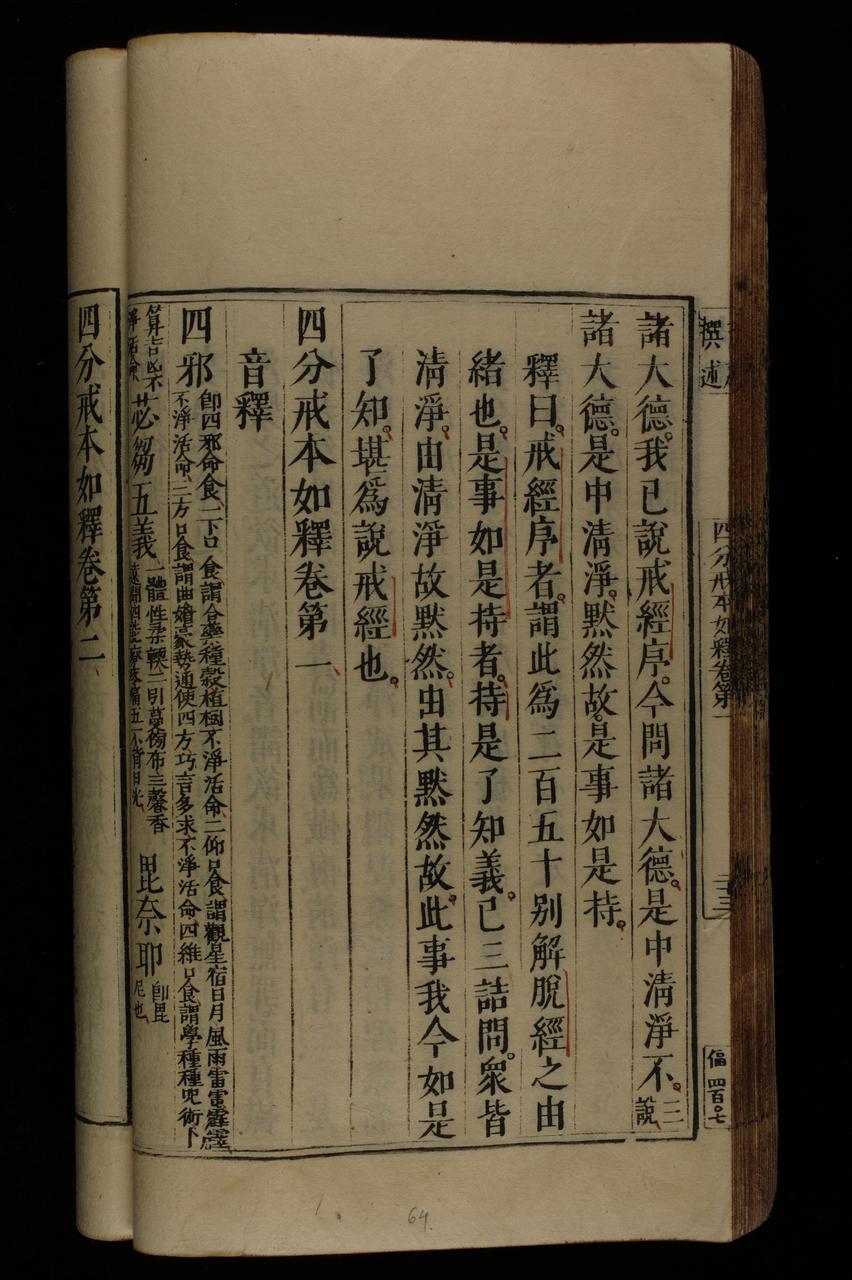 諸大德。我已說戒經序。今問諸大德。是中清淨不。三說
諸大德。是中清淨。默然故。是事如是持。
釋曰。戒經序者。謂此為二百五十別解脫經之由
緒也。是事如是持者。持是了知義。已三詰問。衆皆
清淨。由清淨故默然。由其默然故。此事我今如是
了知。堪為說戒經也。
四分戒本如釋卷第一
音釋
四邪
卽四邪命食一下口食謂合藥種穀植樹不淨活命二仰口食謂觀星宿日月風雨雷電霹靂
不淨活命三方口食謂曲媚豪勢通使四方巧言多求不淨活命四維口食謂學種種呪術卜
算吉凶不
淨活命
苾芻五義
一體性柔軟二引蔓傍布三馨香
遠聞四能療疼痛五不背日光
毗奈耶
卽毘
尼也
四分戒本如釋卷第二
撰述
四分戒本如釋卷第一
二十三
四百〇七
64